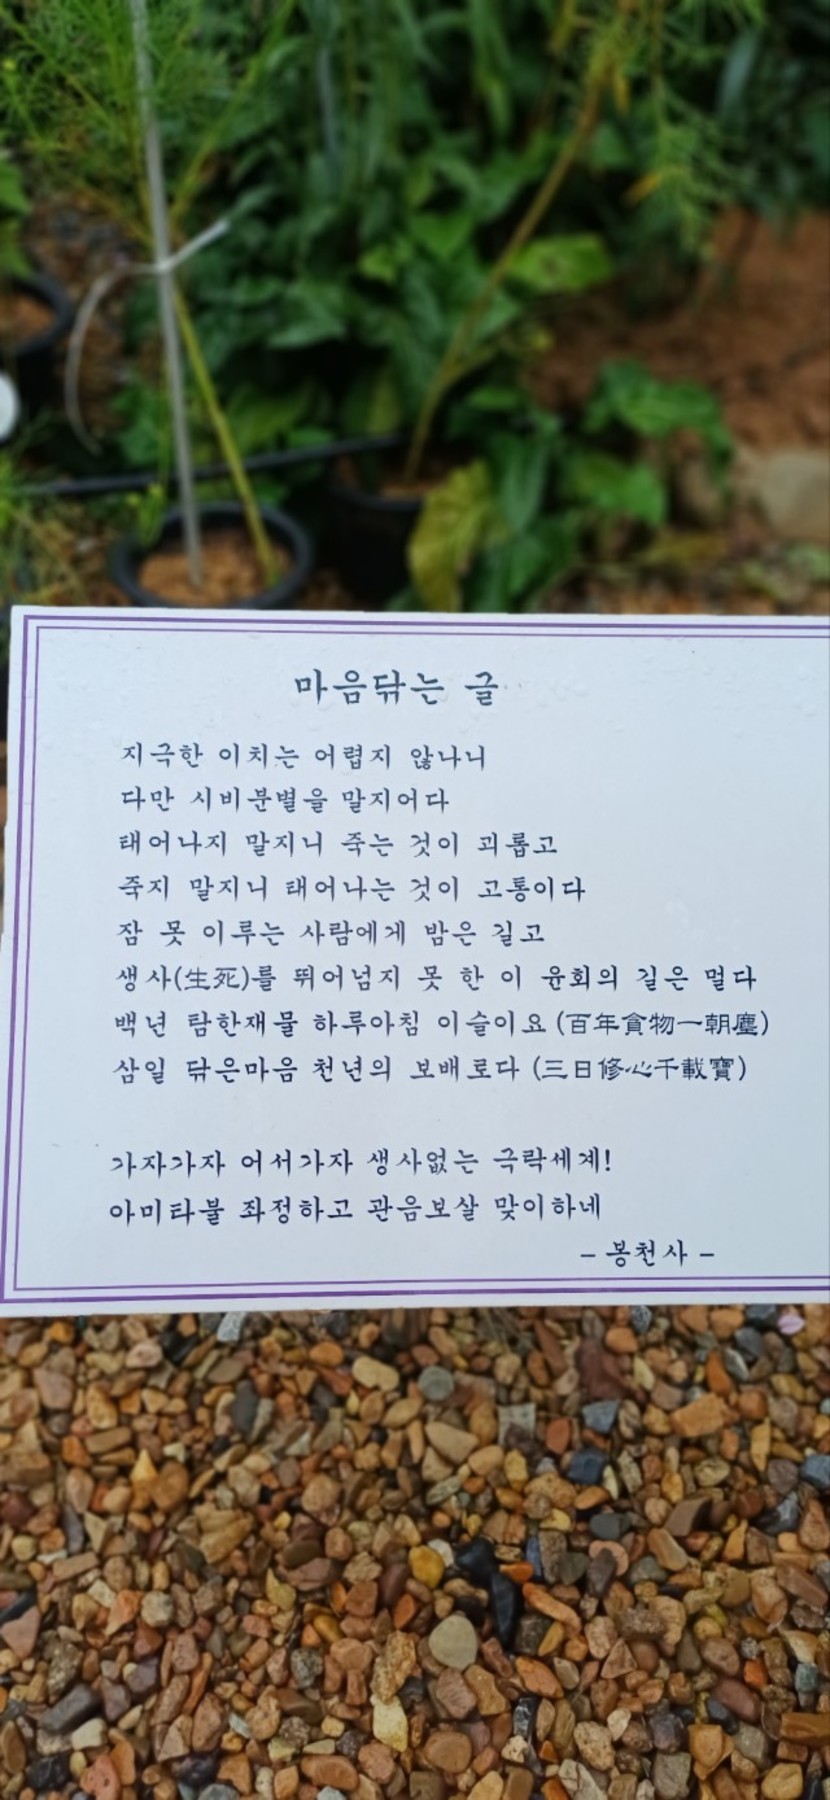 마음닦는 글
지극한 이치는 어렵지 않나니
다만 시비분별을 말지어다
태어나지 말지니 죽는 것이 괴롭고
죽지 말지니 태어나는 것이 고통이다
잠 못 이루는 사람에게 밤은 길고
생사(生死)를 뛰어넘지 못 한 이 윤회의 길은 멀다
백년 탐한재물 하루아침 이슬이요 (百年貪物一朝塵)
삼일 닦은마음 천년의 보배로다 (三日修心千載寶)
가자가자 어서가자 생사없는 극락세계!
아미타불 좌정하고 관음보살 맞이하네
– 봉천사 –